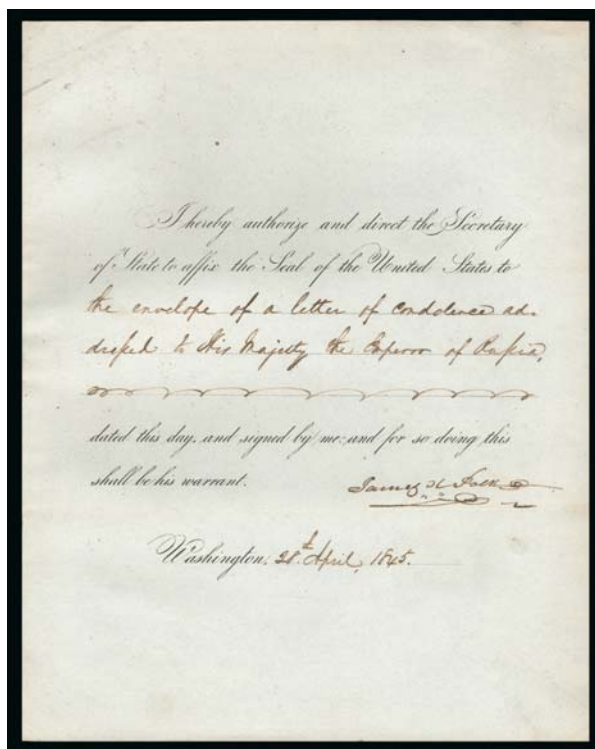 I hereby authorize and direct the Secretary
of State to affix the Seal of the United States to
the envelope of a letter of condolence ad-
dressed to His Majesty the Emperor of Russia,
dated this day, and signed by me: and for so doing this
shall be his warrant.
James K Polk
Washington, 28th April, 1845.